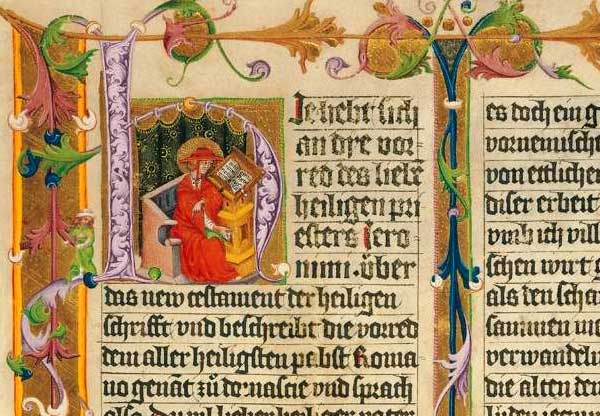 HIe hebt sich
an dye vor-
red des liebē
heiligen pri
esters iero
nimi. über
das new testament der heiligen
schrifft vnd beschreibt die vorred
dem aller heiligsten pebst Roma
no genāt zů dernascie vnd sprach
es doch ein g
von ettlichen
diser erbeit
vmb ich vill
schen wurt g
als den scha
verwandeln
die alten den